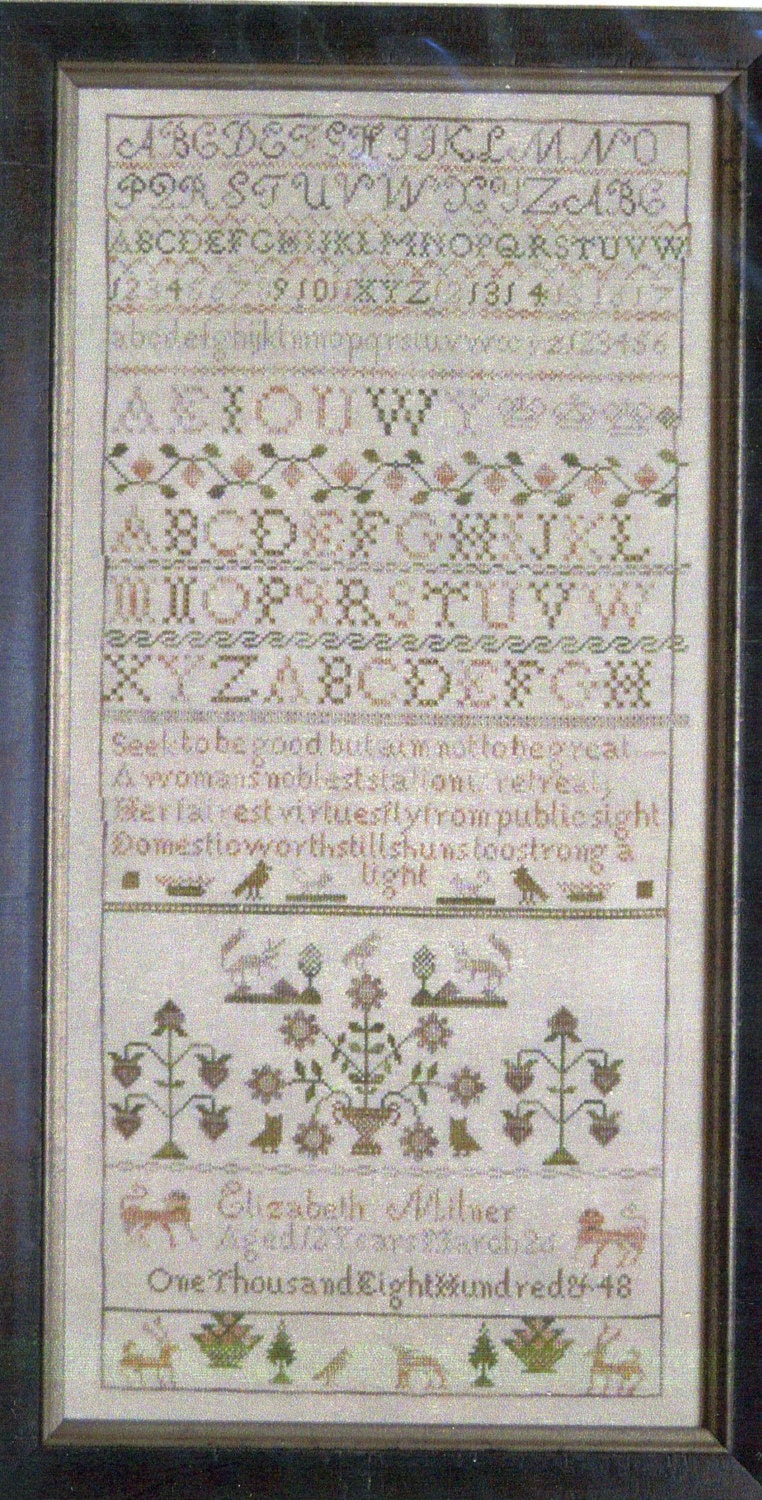 ABCDEFGHIJKLMNO
PQRSTUVWXYZABC
ABCDEFGHIJKLMNOPQRSTUVW
1234567891011XYZ121314151617
abcdefghijklmnopqrstuvwxyz123456
AEIOUWY
ABCDEFGHIJKL
MNOPQRSTUVW
XYZABCDEFGH
Seek to be good but aim not to be great
A womans noblest station retreat
Her fairest virtues fly from public sight
Domestic worth still shuns too strong a
light
Elizabeth Milner
Aged 12 Years March 26
One Thousand Eight Hundred & 48